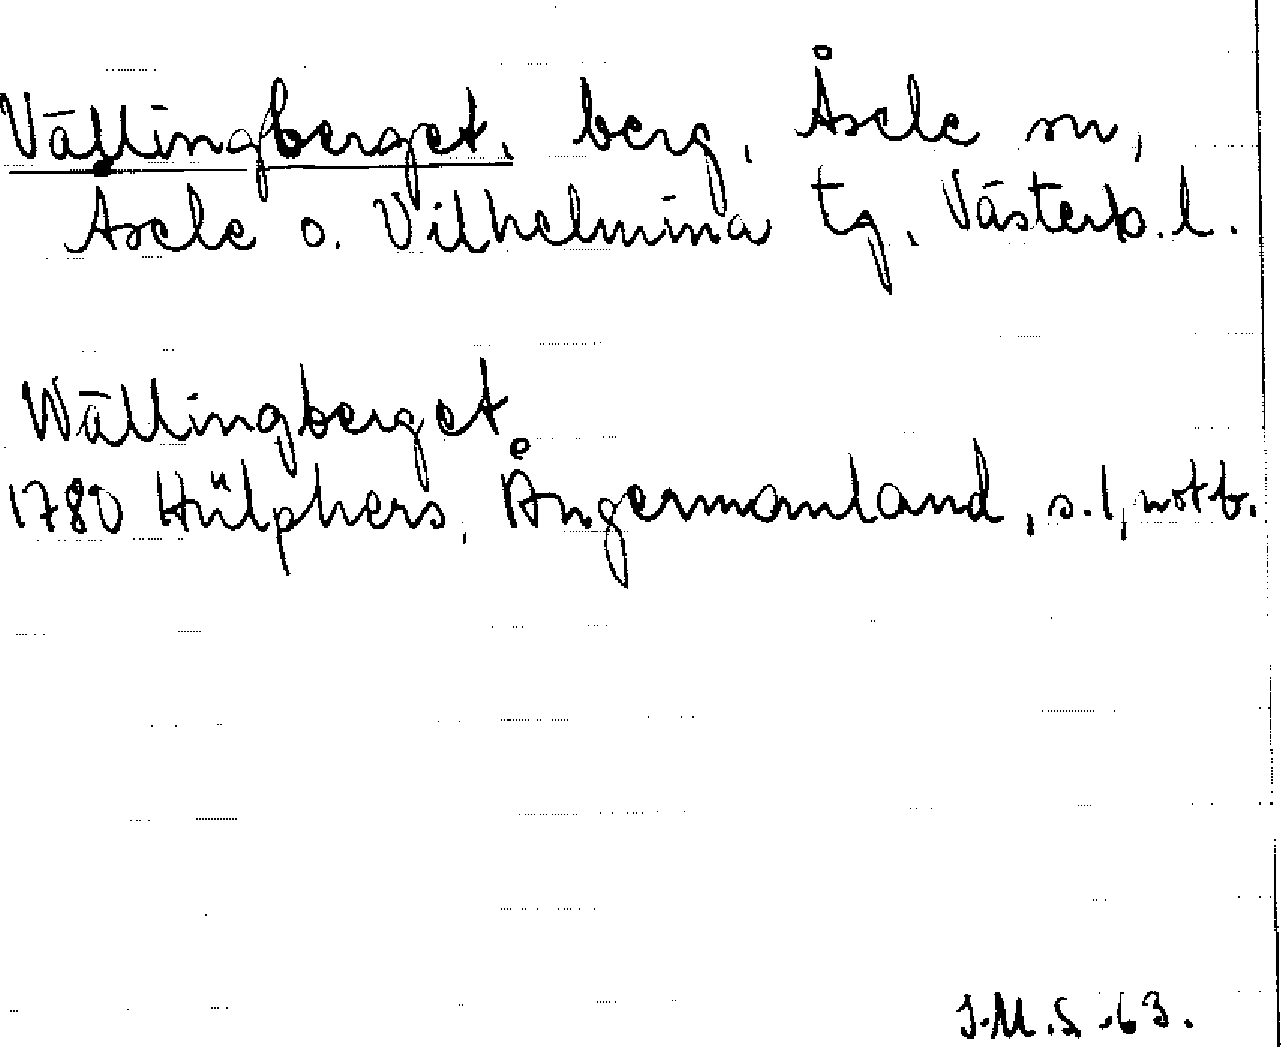 Vällingberget, berg, Åsele sn,
Åsele o. Vilhelmina tg, Västerb.l.
Wällingberget
1780 Hülphers, Ångermanland, s.1, not b.
J.M.S.-63.